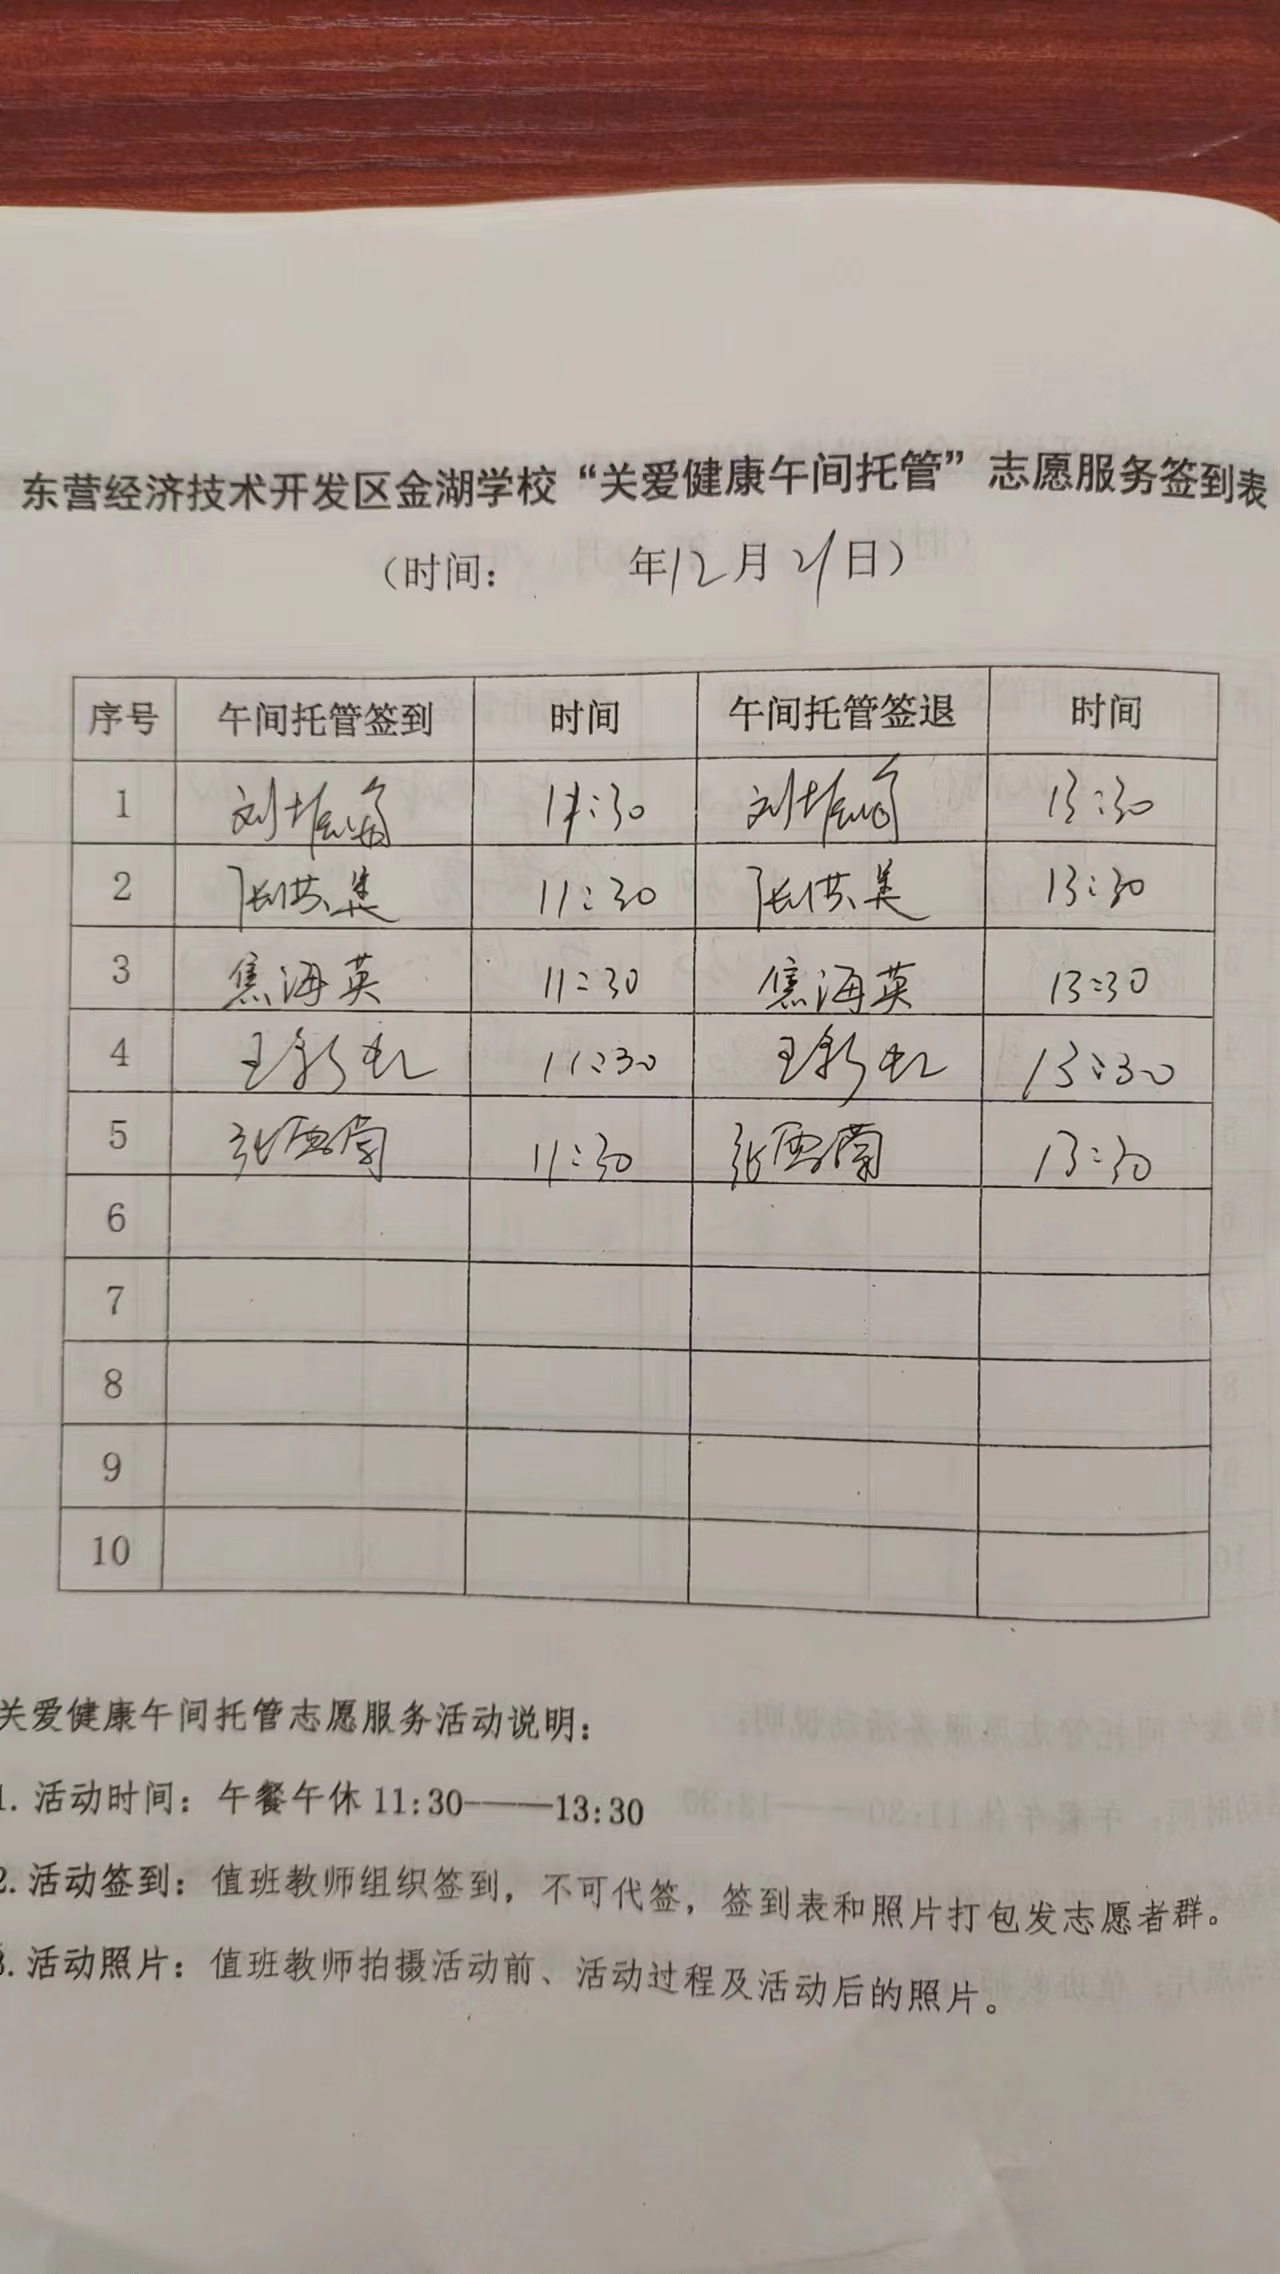 东营经济技术开发区金湖学校“关爱健康午间托管”志愿服务签到表
（时间： 年12月21日）
序号 午间托管签到 时间 午间托管签退 时间
1 刘 11:30 刘 13:30
2 张洪美 11:30 张洪美 13:30
3 焦海英 11:30 焦海英 13:30
4 王彩虹 11:30 王彩虹 13:30
5 张西兰 11:30 张西兰 13:30
6
7
8
9
10
关爱健康午间托管志愿服务活动说明：
1. 活动时间：午餐午休 11:30——13:30
2. 活动签到：值班教师组织签到，不可代签，签到表和照片打包发志愿者群。
3. 活动照片：值班教师拍摄活动前、活动过程及活动后的照片。